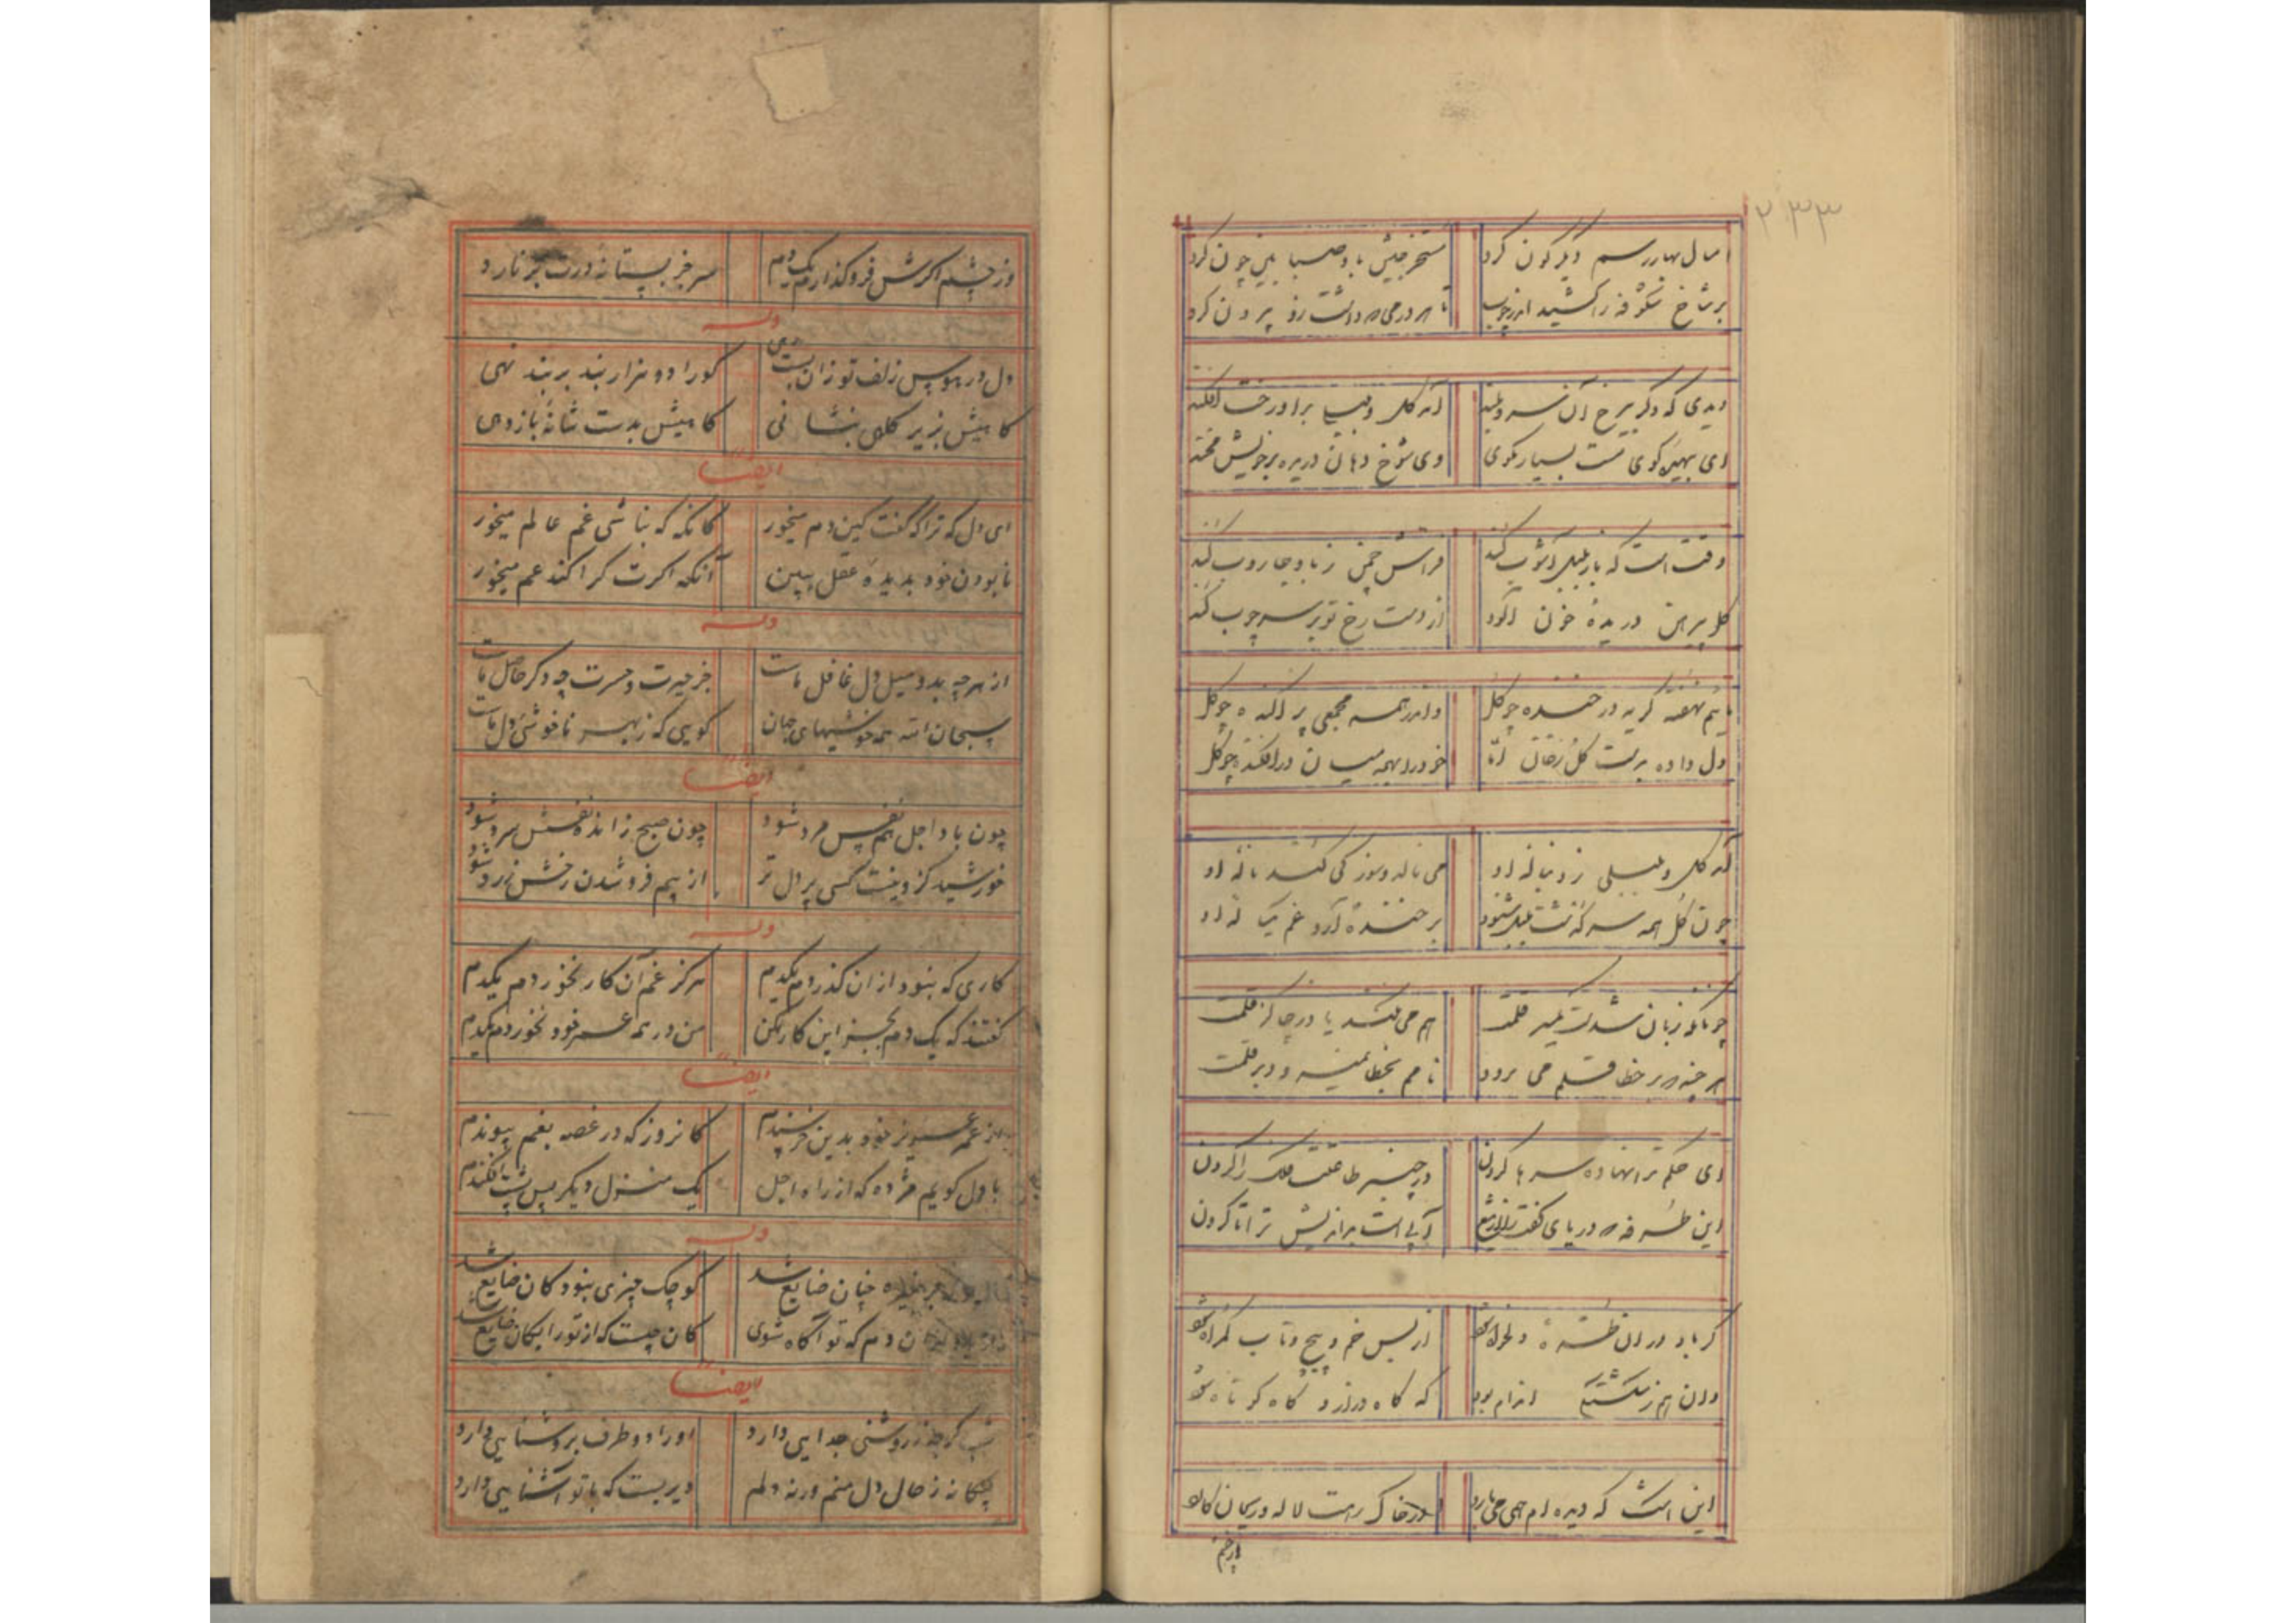 ۲۳۳
امسال بهار رسم دیگرگون کرد
مستخرجیش باد صبا بین چون کرد
بر شاخ شکوفه را کشید اندر چوب
تا هر درمی که داشت زو بیرون کرد
دیدی که دگر بیرخ آن سرو بلند
آمد گل و
ای بهینه گوی مست بسیار مگوی
وی شوخ دهان دریده بر خویش مخند
وقت است که باز بلبل آشوب کند
فراش چمن ز باد جاروب کند
گل پیرهن دریده خون آلود
از دست رخ تو بر سر چوب کند
مائیم نهفته گریه در خنده چو گل
واندر همه مجمعی پراکنده چو گل
دل داده بدست گل رخان اما
خود را بهمه میان درافکنده چو گل
آمد گل و بلبلی ز دنباله او
می نالد و سوز می کند ناله او
چون گل همه
بر خنده آرد غم یک له او
هم می کند یا
هر چند که بر خط قلم می رود
نامم بخطا
ای حکم ترا نهاده سرها گردن
در چنبر طاعتت فلک را گردن
این طرفه که دریای کفت
آبی است بداندیش ترا تا گردن
گر باد در آن طره دلخواه شود
از بس خم و پیچ و تاب گمراه شود
وان هم ز شکستگی اندام بود
که گاه دراز و گاه کوتاه شود
این اشک که دیده ام همی می بارد
در خاک رهت لاله و ریحان کارد
ارخم
وز چشم اگرش فروگذارم یک دم
سر جز بپستانه درت بر نارد
وله
دل در هوس زلف تو زان بست
کورا دو هزار بند بر بند نهی
گاهیش بزیر کلاه بنشانی
گاهیش بدست شانه باز دهی
ایضاً
ای دل که ترا که گفت کین دم میخور
کانگه که نباشی غم عالم میخور
نابودن خود بدیده عقل ببین
آنگه اگرت کرا کند غم میخور
وله
از هرچه بدو میل دل غافل ماست
جز حیرت و حسرت چه دگر حاصل ماست
سبحان الله همه خوشیهای جهان
گویی که ز بهر ناخوشی دل ماست
ایضاً
چون باد اجل هم نفس مرد شود
چون صبح زاندُه نفسش سرد شود
خورشید کزو نیست کسی پر دل تر
از بیم فرو شدن رخش زرد شود
وله
کاری که نبود از آن گذردم یکدم
هرگز غم آن کار نخوردم یکدم
گفتند که یک دم بجز این کار مکن
من در همه عمر خود نخوردم یکدم
ایضاً
از عمر عزیز خود بدین خرسندم
کانروز که در غصه بغم پیوندم
با دل گویم مژده که از راه اجل
یک منزل دیگر پس پشت افکندم
وله
چنان ضایع شد
کوچک چیزی نبود کان ضایع شد
دم که تو آگاه شوی
کان چیست که از تو رایگان ضایع شد
ایضاً
شب گرچه ز روشنی جدایی دارد
او را دو طرف بروشنایی دارد
بیگانه ز حال دل منم ورنه دلم
دیریست که با تو آشنایی دارد